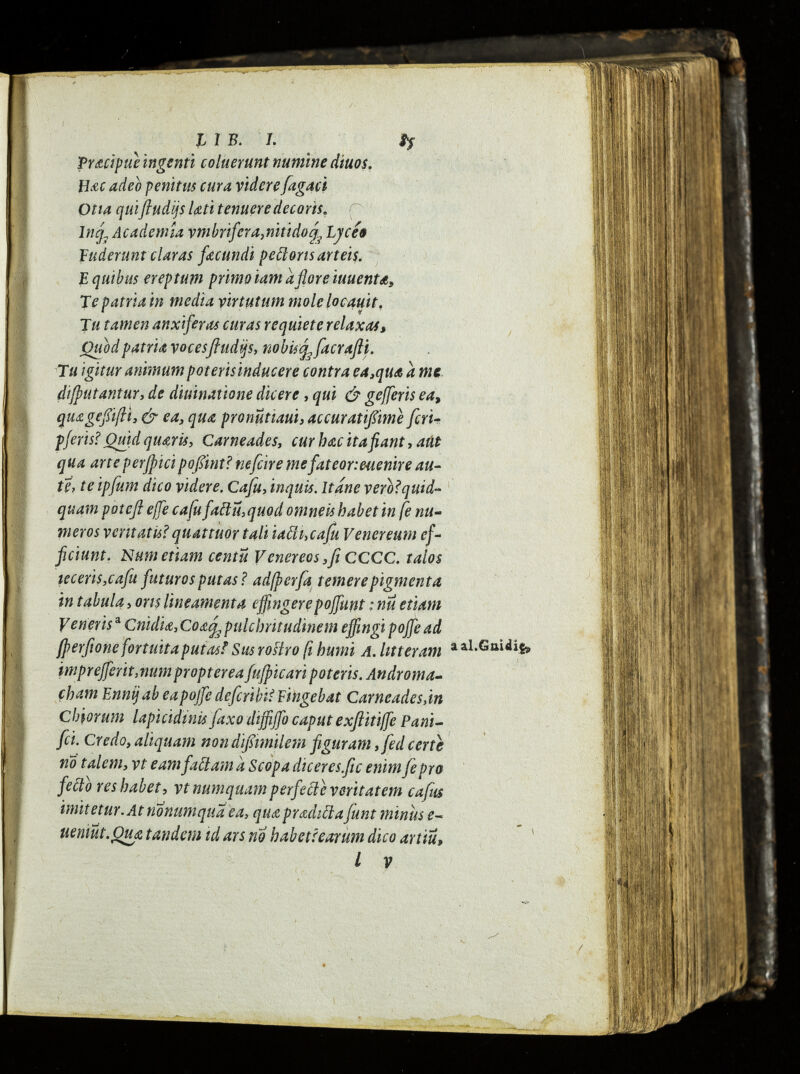 LIB. I. 85
Præcipuè ingenti coluerunt numine diuos.
Hæc adeò penitus cura videre ſagaci
Otia qui ſtudijs læti tenuere decoris,
Inq; Academia vmbrifera, nitidoq; Lycéo
Fuderunt claras fæcundi pectoris arteis.
E quibus ereptum primo iam à flore iuuentæ,
Te patria in media virtutum mole locauit.
Tu tamen anxiferas curas requiete relaxas,
Quòd patriæ voces ſtudijs, nobisq; ſacraſti.
Tu igitur animum poteris inducere contra ea, quæ à me
diſputantur, de diuinatione dicere, qui & geſſeris ea,
quæ geſsiſti, & ea, quæ pronūtiaui, accuratiſsimè ſcri-
pſeris? Quid quæris, Carneades, cur hæc ita fiant, aut
qua arte perſpici poſsint? neſcire me fateor: euenire au-
tē, te ipſum dico videre. Caſu, inquis. Itáne verò? quid-
quam poteſt eſſe caſu factū, quod omneis habet in ſe nu-
meros veritatis? quattuor tali iacti, caſu Venereum ef-
ficiunt. Num etiam centū Venereos, ſi CCCC. talos
ieceris, caſu futuros putas? adſperſa temere pigmenta
in tabula, oris lineamenta effingere poſſunt: nū etiam
Veneris ª Cnidiæ, Coæq; pulchritudinem effingi poſſe ad
ſperſione fortuita putas? Sus roſtro ſi humi A. litteram
a al. Gnidię,
impreſſerit, num propterea ſuſpicari poteris. Androma-
cham Ennij ab ea poſſe deſcribi? Fingebat Carneades, in
Chiorum lapicidinis ſaxo diffiſſo caput exſtitiſſe Pani-
ſci. Credo, aliquam non diſsimilem figuram, ſed certè
nō talem, vt eam factam à Scopa diceres. ſic enim ſe pro
fectò res habet, vt numquam perfectè veritatem caſus
imitetur. At nōnumquā ea, quæ prædicta ſunt minùs e-
ueniūt. Quæ tandem id ars nō habet? earum dico artiū,
l v